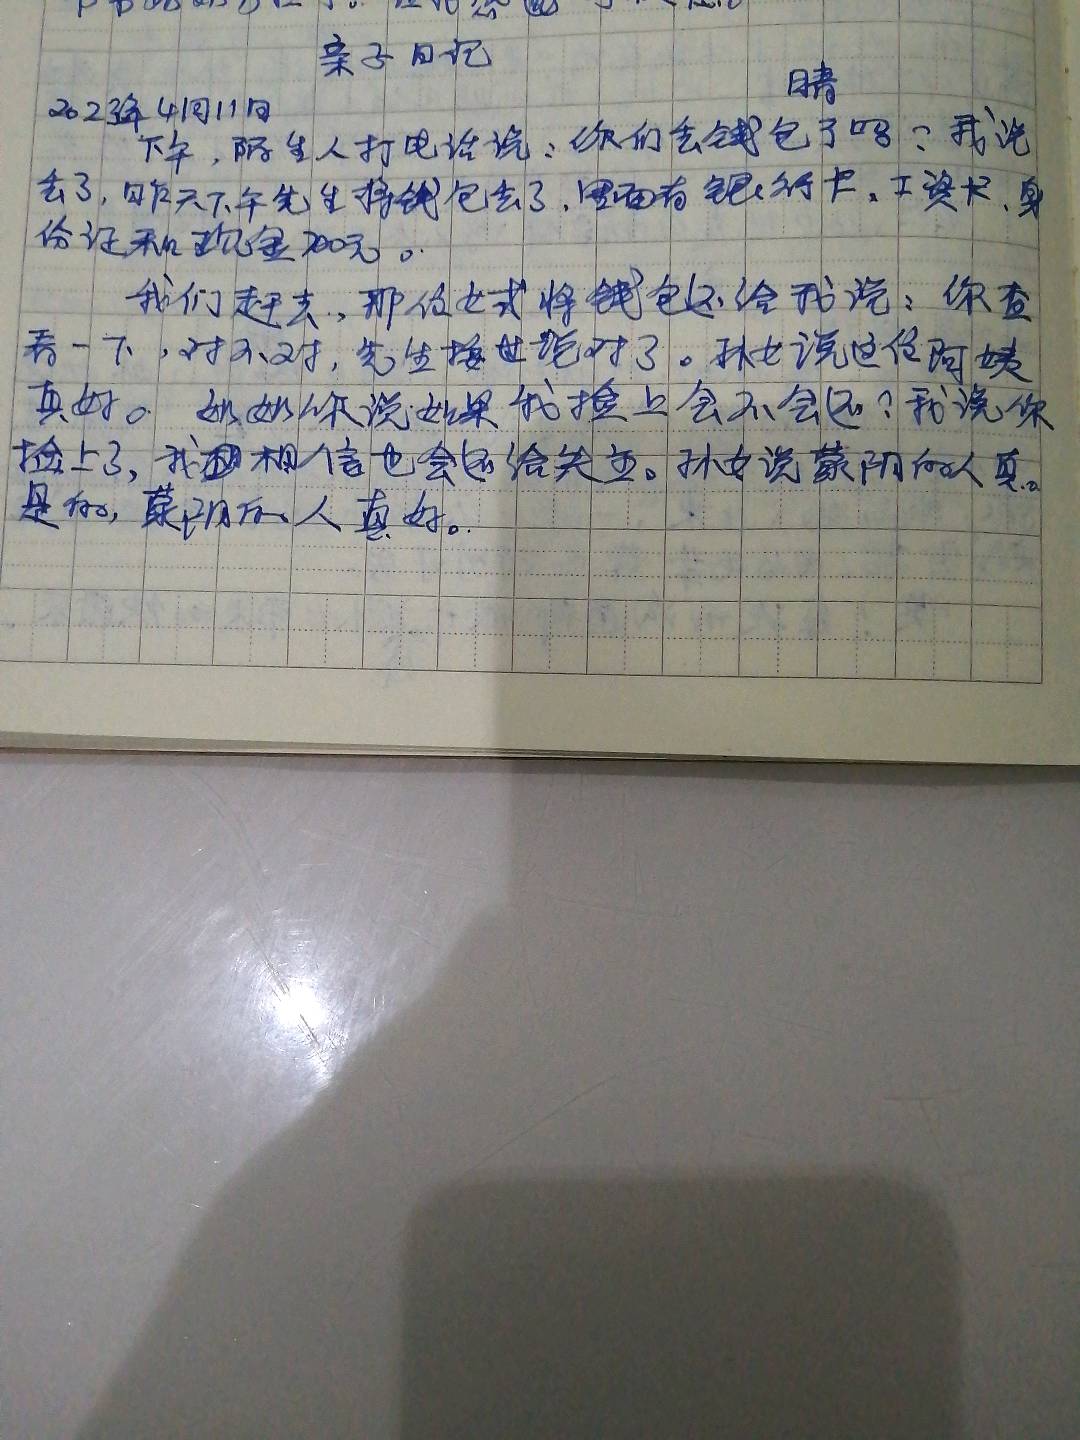 亲子日记
2023年4月11日 晴
下午，陌生人打电话说：你们丢钱包了吗？我说
丢了，昨天下午先生将钱包丢了，里面有银行卡、工资卡、身
份证和现金700元。
我们赶去，那位女式将钱包还给我说：你查
看一下，对不对，先生接过说对了。孙女说这位阿姨
真好。奶奶你说如果我捡上会不会还？我说你
捡上了，我相信也会还给失主。孙女说蒙阴的人真。
是的，蒙阴的人真好。